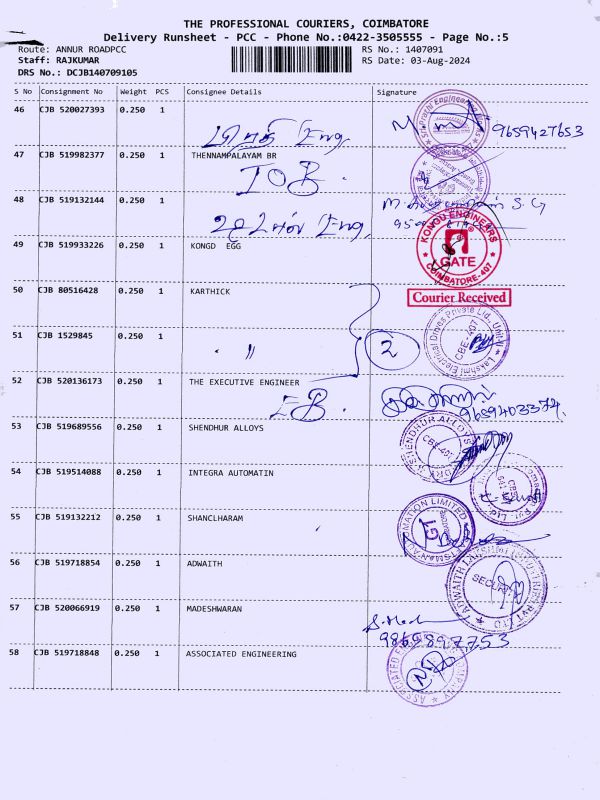 THE PROFESSIONAL COURIERS, COIMBATORE
Delivery Runsheet - PCC - Phone No.:0422-3505555 - Page No.:5
Route: ANNUR ROADPCC RS No.: 1407091
Staff: RAJKUMAR RS Date: 03-Aug-2024
DRS No.: DCJB140709105
S No Consignment No Weight PCS Consignee Details Signature
46 CJB 520027393 0.250 1
Eng 9659427653
47 CJB 519982377 0.250 1 THENNAMPALAYAM BR
IOB.
48 CJB 519132144 0.250 1
Eng,
49 CJB 519933226 0.250 1 KONGD EGG
KONGU ENGINEERS
GATE
COIMBATORE-407
50 CJB 80516428 0.250 1 KARTHICK
Courier Received
51 CJB 1529845 0.250 1
" 2
Lakshmi Electrical Drives Private Ltd., Unit-II
CBE-407
52 CJB 520136173 0.250 1 THE EXECUTIVE ENGINEER
EB.
53 CJB 519689556 0.250 1 SHENDHUR ALLOYS
54 CJB 519514088 0.250 1 INTEGRA AUTOMATIN
55 CJB 519132212 0.250 1 SHANCLHARAM
56 CJB 519718854 0.250 1 ADWAITH
ADWAITH LAKSHMI INDUSTRIES PVT LTD
SECURITY
57 CJB 520066919 0.250 1 MADESHWARAN
58 CJB 519718848 0.250 1 ASSOCIATED ENGINEERING